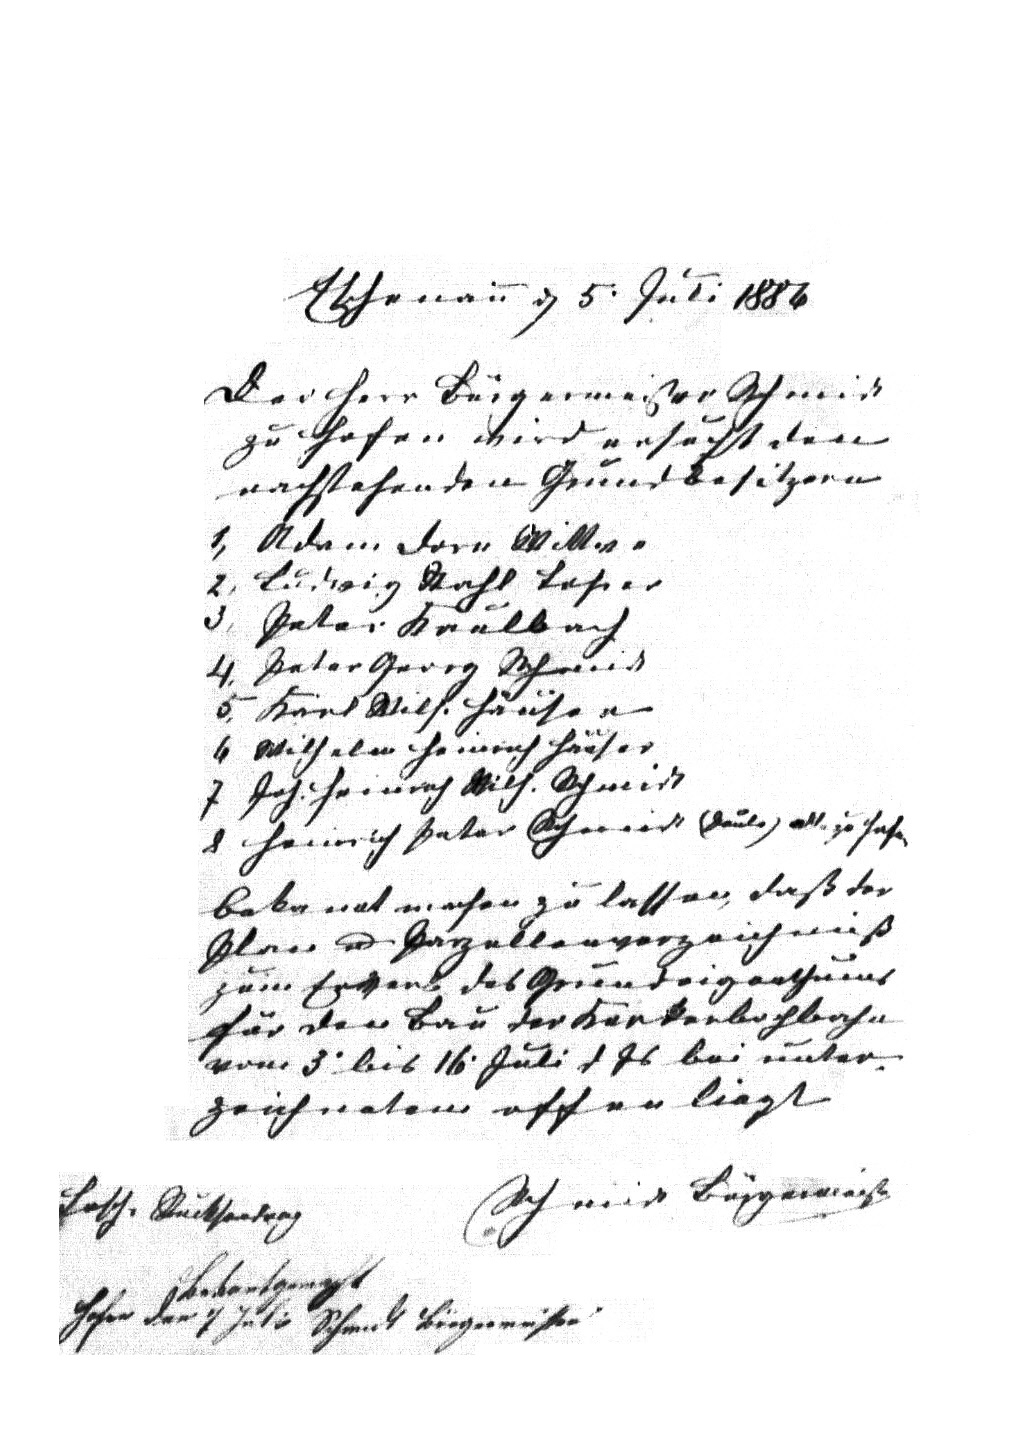 Eschenau d 5. Juli 1886
Der Herr Bürgermeister Schmidt
zu Hofen wird ersucht den
nachstehenden Grundbesitzern
1, Adam Dorn Wittwe
2, Ludwig Stahl
3, Peter Kaulbach
4, Peter Georg Schmidt
5, Karl Wilh. Häuser
6 Wilhelm Heinrich Häuser
7 Joh. Heinrich Wilh. Schmidt
8 Heinrich Peter Schmidt alle zu Hofen
bekannt machen zu lassen, daß der
Plan u Parzellenverzeichniß
zum Erwerb des Grundeigenthums
für den Bau der Kerkerbachbahn
vom 3. bis 16. Juli d Js bei unter-
zeichnetem offen liegt
Schmidt Bürgermeister
Bekantgemacht
Hofen den 7 Juli Schmidt Bürgermeister